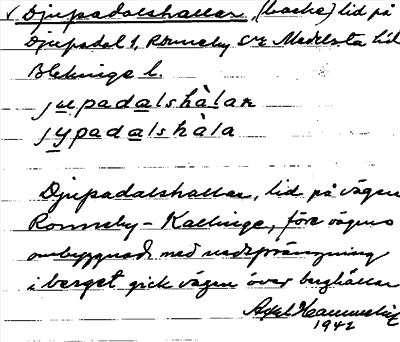 √ Djupadalshallar, (backe) lid på
Djupadal 1, Ronneby sn Medelsta hd
Blekinge l.
jupadalshàlar
jypadalshàla
Djupadalshallar, lid på vägen
Ronneby – Kallinge, före vägens
ombyggnad med nedsprängning
i berget gick vägen över berghällar
Axel
1942